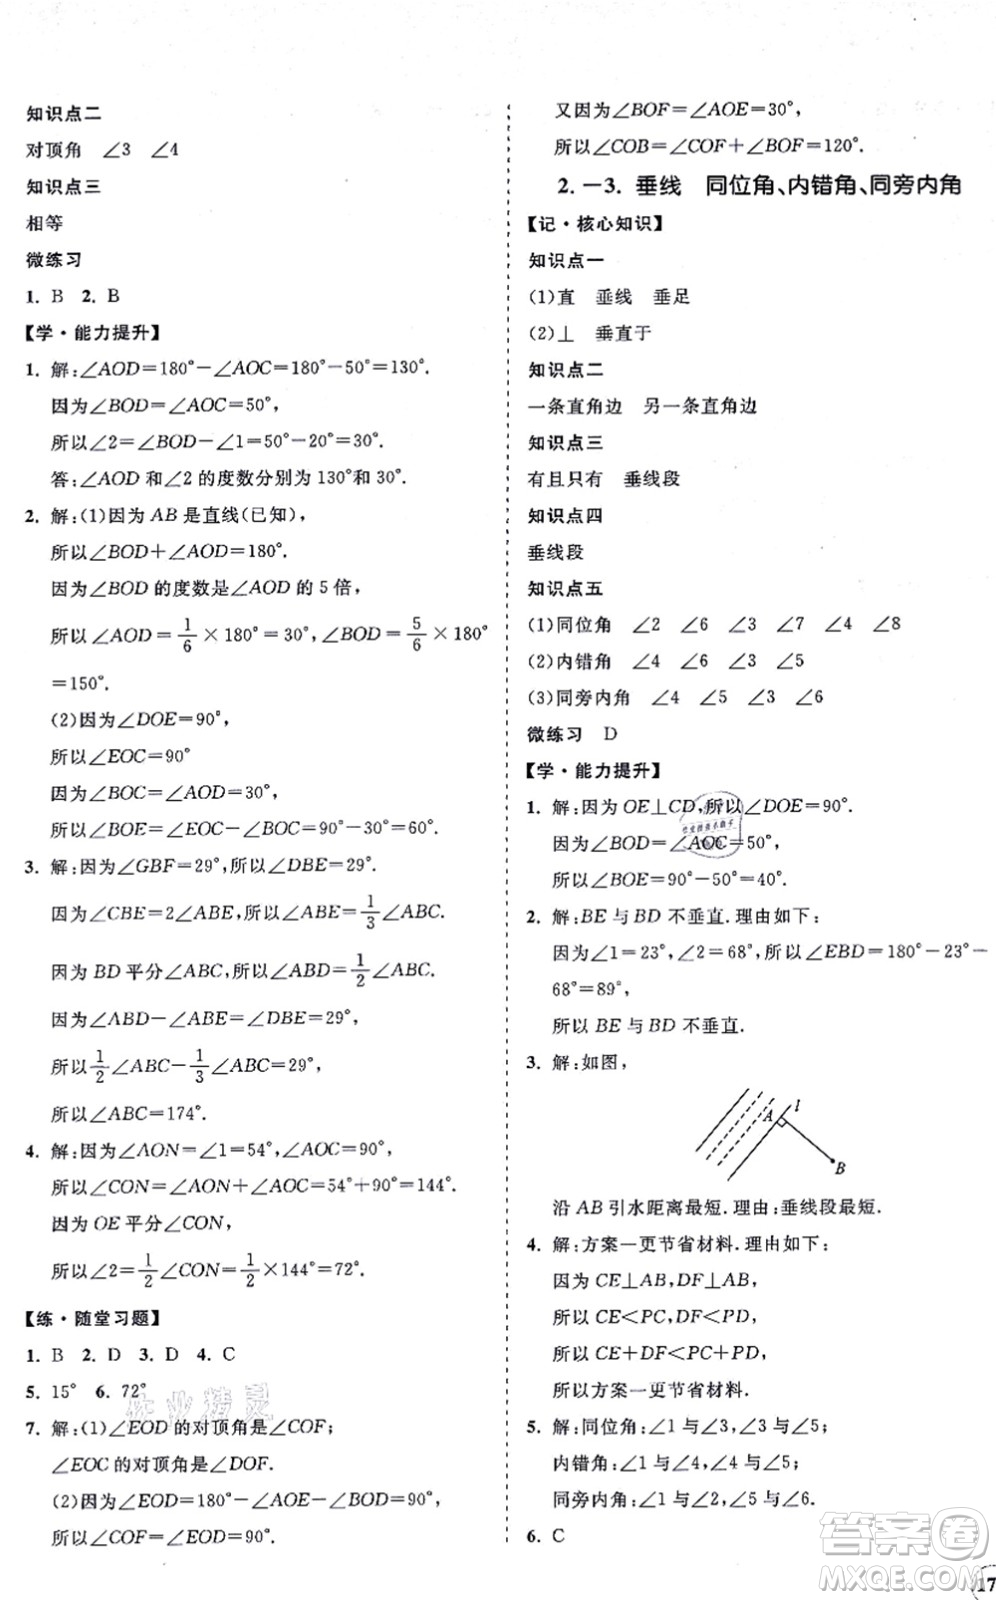 知识点二
对顶角　∠3　∠4
知识点三
相等
微练习
1. B　2. B
【学·能力提升】
1. 解:∠AOD=180°-∠AOC=180°-50°=130°.
因为∠BOD=∠AOC=50°,
所以∠2=∠BOD-∠1=50°-20°=30°.
答:∠AOD 和∠2 的度数分别为 130°和 30°.
2. 解:(1)因为 AB 是直线(已知),
所以∠BOD+∠AOD=180°.
因为∠BOD 的度数是∠AOD 的 5 倍,
所以∠AOD=1/6×180°=30°,∠BOD=5/6×180°
=150°.
(2)因为∠DOE=90°,
所以∠EOC=90°
因为∠BOC=∠AOD=30°,
所以∠BOE=∠EOC-∠BOC=90°-30°=60°.
3. 解:因为∠GBF=29°,所以∠DBE=29°.
因为∠CBE=2∠ABE,所以∠ABE=1/3∠ABC.
因为 BD 平分∠ABC,所以∠ABD=1/2∠ABC.
因为∠ABD-∠ABE=∠DBE=29°,
所以1/2∠ABC-1/3∠ABC=29°,
所以∠ABC=174°.
4. 解:因为∠AON=∠1=54°,∠AOC=90°,
所以∠CON=∠AON+∠AOC=54°+90°=144°.
因为 OE 平分∠CON,
所以∠2=1/2∠CON=1/2×144°=72°.
【练·随堂习题】
1. B　2. D　3. D　4. C
5. 15°　6. 72°
7. 解:(1)∠EOD 的对顶角是∠COF;
∠EOC 的对顶角是∠DOF.
(2)因为∠EOD=180°-∠AOE-∠BOD=90°,
所以∠COF=∠EOD=90°.
又因为∠BOF=∠AOE=30°,
所以∠COB=∠COF+∠BOF=120°.
2. -3. 垂线　同位角、内错角、同旁内角
【记·核心知识】
知识点一
(1)直　垂线　垂足
(2)⊥　垂直于
知识点二
一条直角边　另一条直角边
知识点三
有且只有　垂线段
知识点四
垂线段
知识点五
(1)同位角　∠2　∠6　∠3　∠7　∠4　∠8
(2)内错角　∠4　∠6　∠3　∠5
(3)同旁内角　∠4　∠5　∠3　∠6
微练习　D
【学·能力提升】
1. 解:因为 OE⊥CD,所以∠DOE=90°.
因为∠BOD=∠AOC=50°,
所以∠BOE=90°-50°=40°.
2. 解:BE 与 BD 不垂直.理由如下:
因为∠1=23°,∠2=68°,所以∠EBD=180°-23°-
68°=89°,
所以 BE 与 BD 不垂直.
3. 解:如图,
A　l
B
沿 AB 引水距离最短.理由:垂线段最短.
4. 解:方案一更节省材料.理由如下:
因为 CE⊥AB,DF⊥AB,
所以 CE<PC,DF<PD,
所以 CE+DF<PC+PD,
所以方案一更节省材料.
5. 解:同位角:∠1 与∠5;
内错角:∠1 与∠4,∠4 与∠5;
同旁内角:∠1 与∠2,∠2 与∠5.
6. C
作业精灵
答案卷
MXQE.COM
17